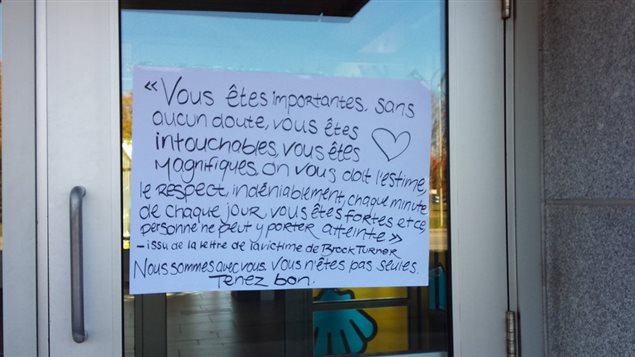 « Vous êtes importantes, sans
aucun doute, vous êtes
intouchables, vous êtes
magnifiques. On vous doit l'estime,
le respect, indéniablement, chaque minute
de chaque jour. Vous êtes fortes et ce,
personne ne peut y porter atteinte »
- issu de la lettre de la victime de Brock Turner
Nous sommes avec vous. Vous n'êtes pas seules.
Tenez bon.